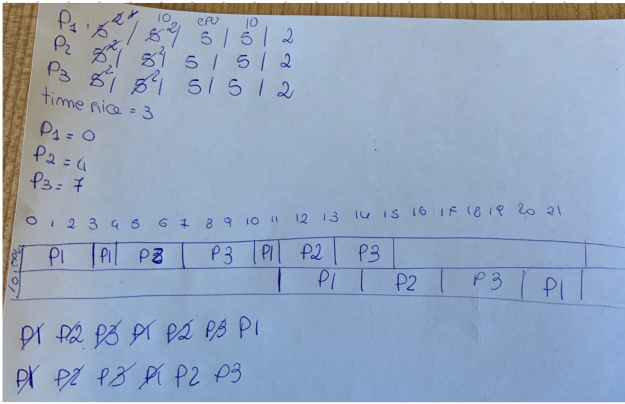 IO CPU IO
P1. 5 2 | 5 2 | 5 | 5 | 2
P2 5 2 | 5 2 | 5 | 5 | 2
P3 5 2 | 5 2 | 5 | 5 | 2
time nice = 3
P1 = 0
P2 = 4
P3 = 7
0 1 2 3 4 5 6 7 8 9 10 11 12 13 14 15 16 17 18 19 20 21
CPU P1 | P1 | P2 | P3 | P1 | P2 | P3
IO P1 | P2 | P3 | P1
P1 P2 P3 P1 P2 P3 P1
P1 P2 P3 P1 P2 P3